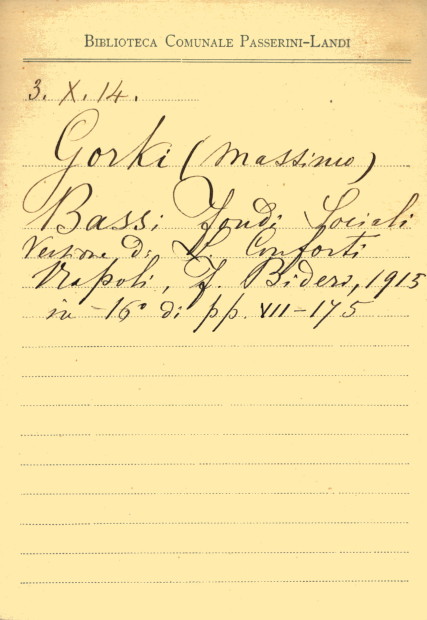 BIBLIOTECA COMUNALE PASSERINI-LANDI
3. X. 14.
Gorki (Massimo)
Bassi Fondi Sociali
Versione di Conforti
Napoli, F. Bideri, 1915
in -16° di pp. VIII-175